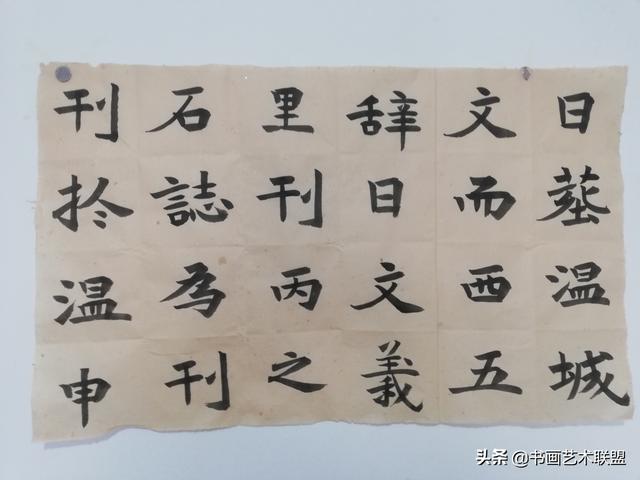 日墓温城
文而西五
辞日文義
里刊丙之
石誌為刊
刊扵温申
头条 @书画艺术联盟